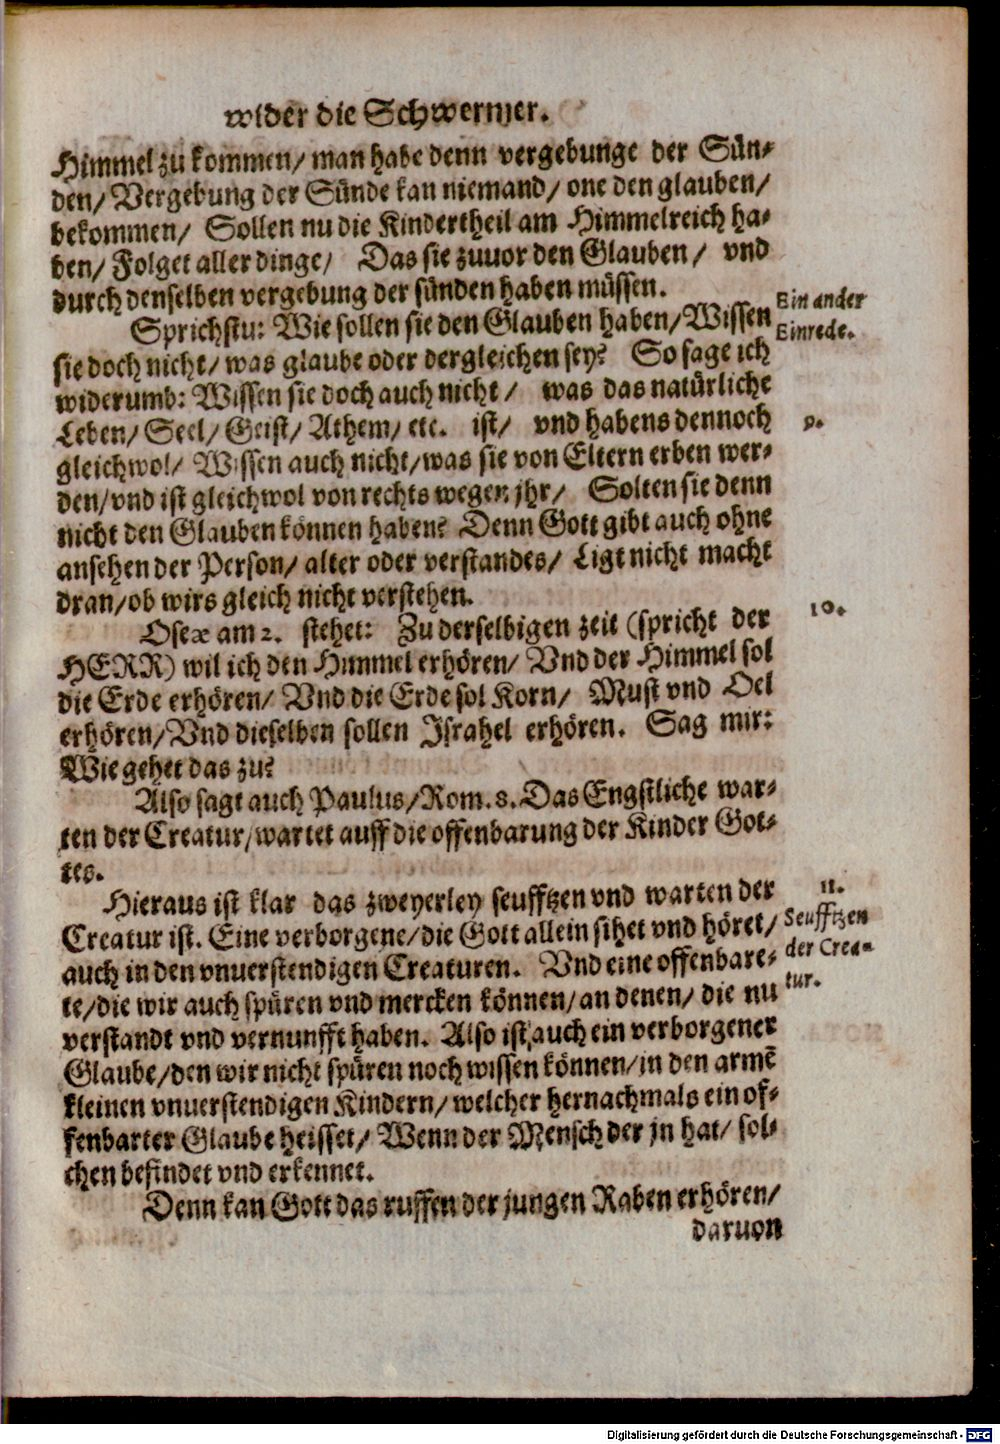 wider die Schwermer.
Himmel zu kommen/ man habe denn vergebunge der Sün-
den/ Vergebung der Sünde kan niemand/ one den glauben/
bekommen/ Sollen nu die Kinder theil am Himmelreich ha-
ben/ Folget aller dinge/ Das sie zuuor den Glauben/ vnd
durch denselben vergebung der sünden haben müssen.
Sprichstu: Wie sollen sie den Glauben haben/ Wissen
Ein ander
Einrede.
sie doch nicht/ was glaube oder dergleichen sey? So sage ich
widerumb: Wissen sie doch auch nicht/ was das natürliche
Leben/ Seel/ Geist/ Athem/ etc. ist/ vnd habens dennoch
9.
gleichwol/ Wissen auch nicht/ was sie von Eltern erben wer-
den/ vnd ist gleichwol von rechts wegen jhr/ Solten sie denn
nicht den Glauben können haben? Denn Gott gibt auch ohne
ansehen der Person/ alter oder verstandes/ Ligt nicht macht
dran/ ob wirs gleich nicht verstehen.
10.
Oseæ am 2. stehet: Zu derselbigen zeit (spricht der
HERR) wil ich den Himmel erhören/ Vnd der Himmel sol
die Erde erhören/ Vnd die Erde sol Korn/ Must vnd Oel
erhören/ Vnd dieselben sollen Israhel erhören. Sag mir:
Wie gehet das zu?
Also sagt auch Paulus/ Rom. 8. Das Engstliche war-
ten der Creatur/ wartet auff die offenbarung der Kinder Got-
tes.
Hieraus ist klar das zweyerley seufftzen vnd warten der
11.
Creatur ist. Eine verborgene/ die Gott allein sihet vnd höret/
Seufftzen
der Crea-
tur.
auch in den vnuerstendigen Creaturen. Vnd eine offenbare-
te/ die wir auch spüren vnd mercken können/ an denen/ die nu
verstandt vnd vernunfft haben. Also ist auch ein verborgener
Glaube/ den wir nicht spüren noch wissen können/ in den armē
kleinen vnuerstendigen Kindern/ welcher hernachmals ein of-
fenbarter Glaube heisset/ Wenn der Mensch der jn hat/ sol-
chen befindet vnd erkennet.
Denn kan Gott das ruffen der jungen Raben erhören/
daruon
Digitalisierung gefördert durch die Deutsche Forschungsgemeinschaft - DFG